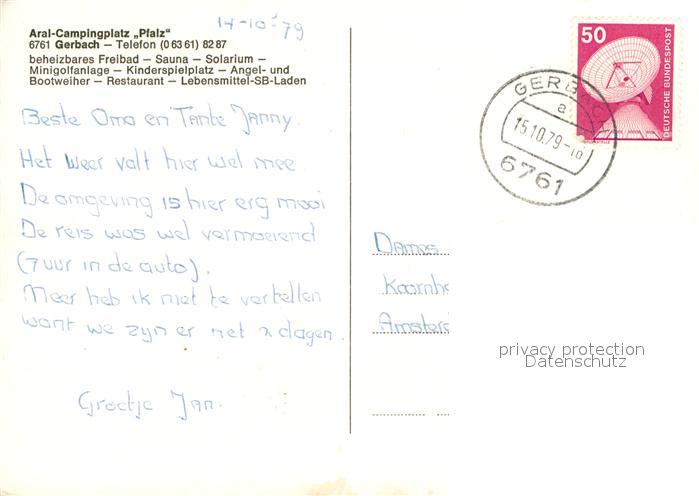 14-10-'79
Aral-Campingplatz „Pfalz"
6761 Gerbach — Telefon (0 63 61) 82 87
beheizbares Freibad — Sauna — Solarium —
Minigolfanlage — Kinderspielplatz — Angel- und
Bootweiher — Restaurant — Lebensmittel-SB-Laden
Beste Oma en Tante Janny.
Het weer valt hier wel mee
De omgeving is hier erg mooi
De reis was wel vermoeiend
(7 uur in de auto).
Meer heb ik niet te vertellen
want we zijn er net 2 dagen.
Groetje Jan.
50
DEUTSCHE BUNDESPOST
GERBACH
a
15.10.79-10
6761
Dames
Koornh
Amsterd
privacy protection
Datenschutz